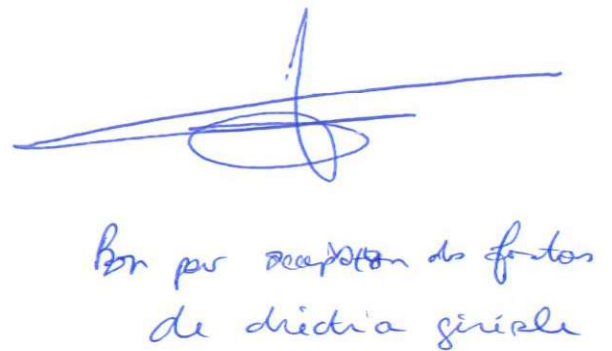 Bon pour acceptation des fonctions
de directrice générale